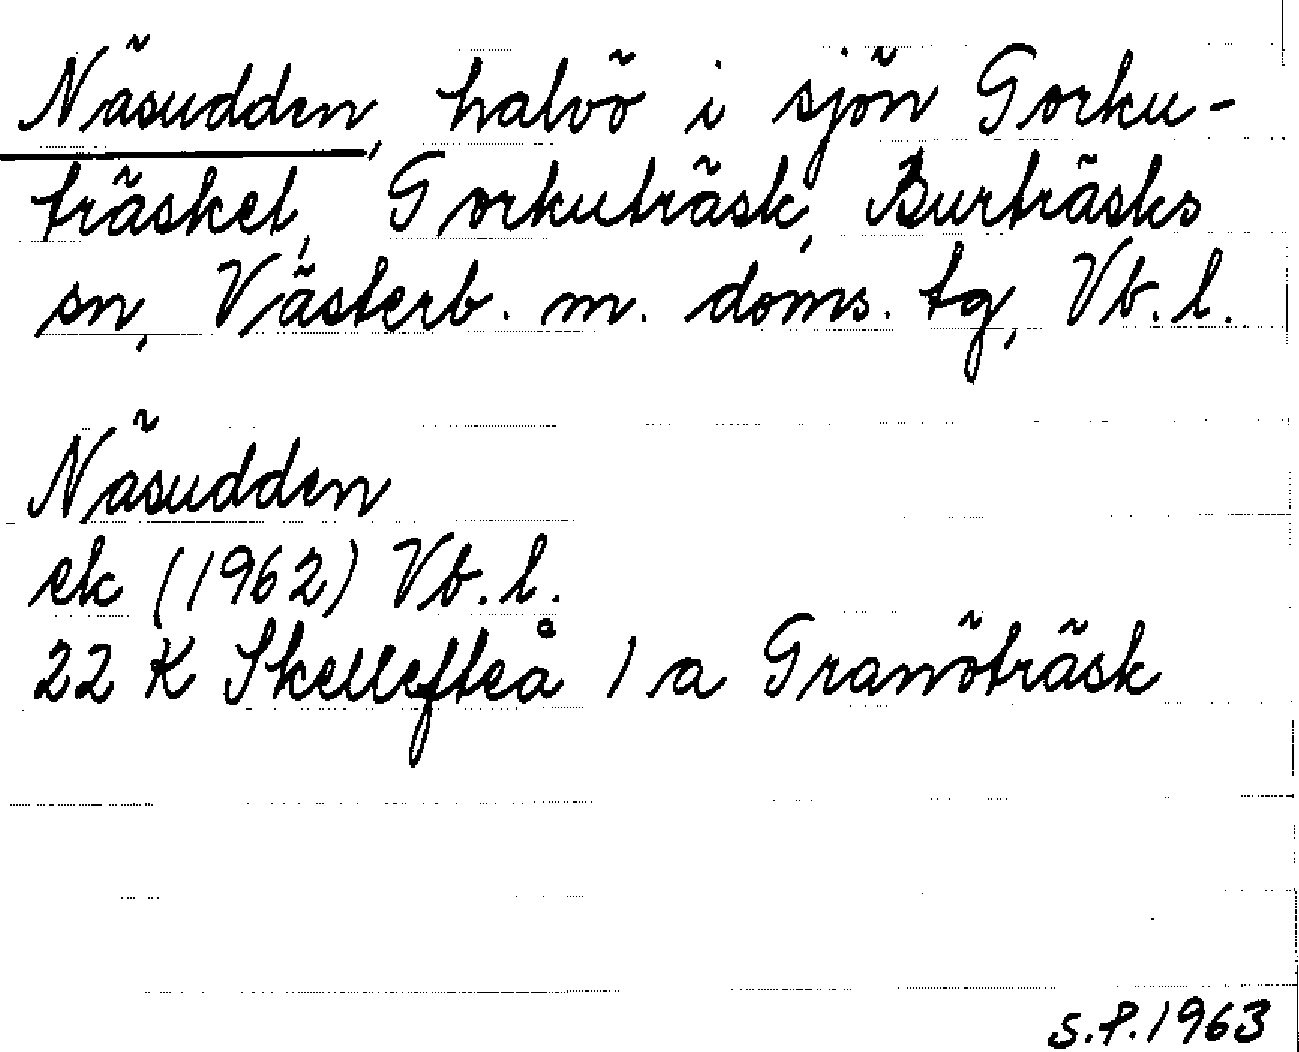 Näsudden, halvö i sjön Gorku-
träsket, Gorkuträsk, Burträsks
sn, Västerb. m. doms. tg, Vb. l.
Näsudden
ek (1962) Vb. l.
22 K Skellefteå 1 a Granöträsk
S.P. 1963